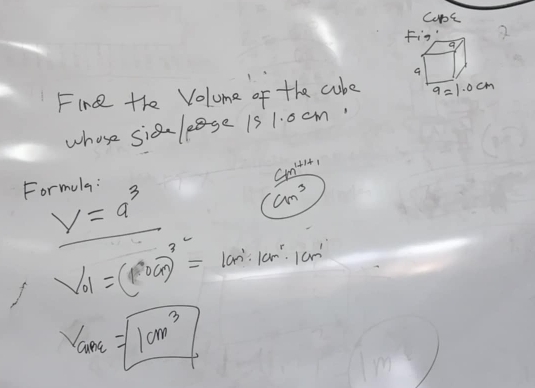 Cube
Fig:
a
a
a = 1.0 cm
Find the Volume of the cube
whose side/edge is 1.0 cm.
Formula:
V = a³
cm¹⁺¹⁺¹
cm³
Vol = (1.0cm)³ = 1cm¹. 1cm¹. 1cm¹
V cube = 1cm³
1m